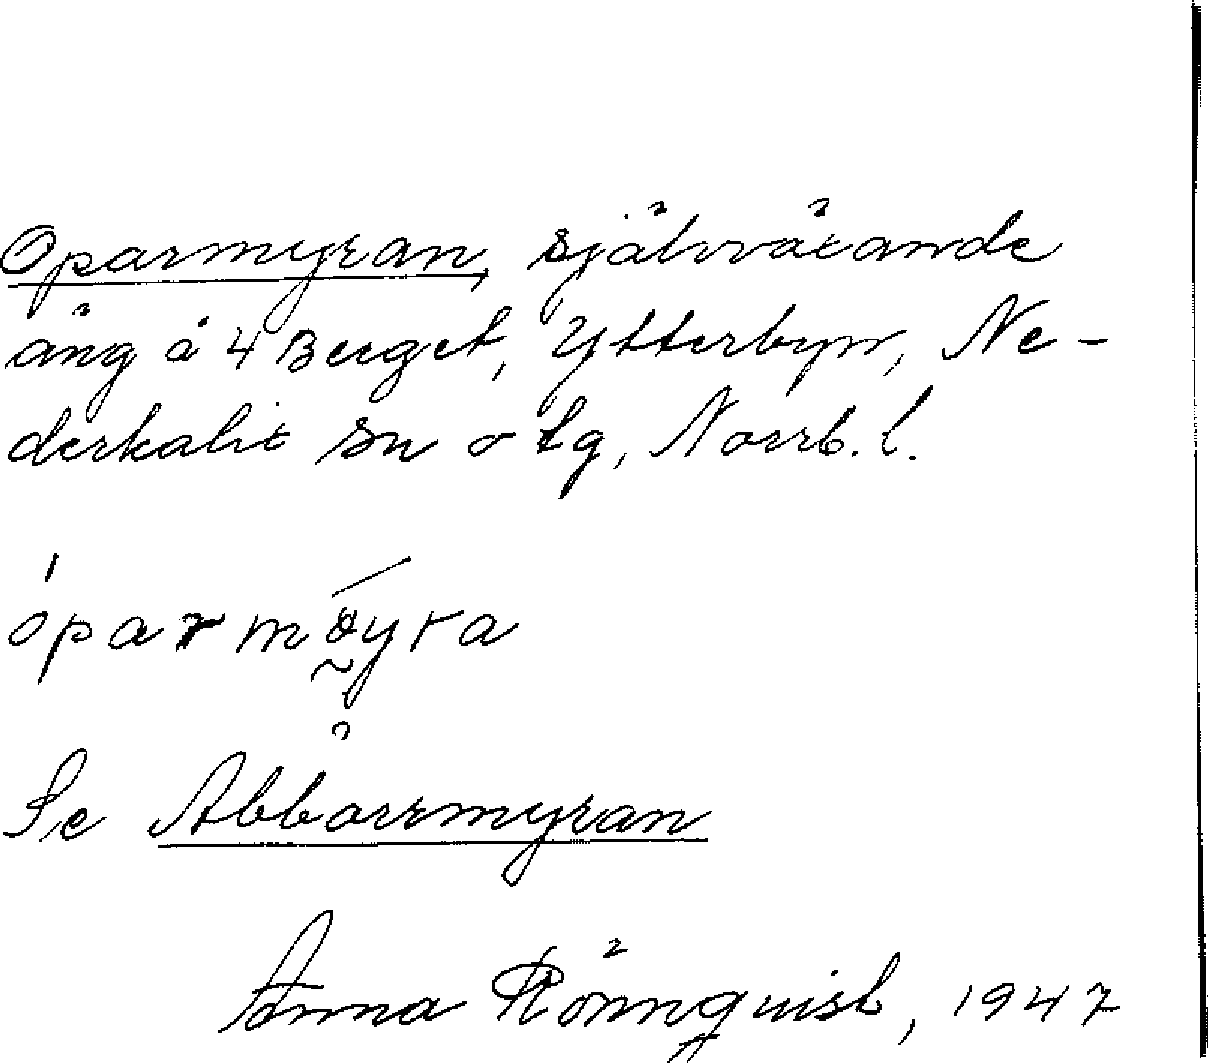 Oparmyran, självvätande
äng å 4 Berget, Ytterbyn, Ne-
derkalix sn o tg, Norrb. l.
Se Abborrmyran
Anna Rönnquist, 1947